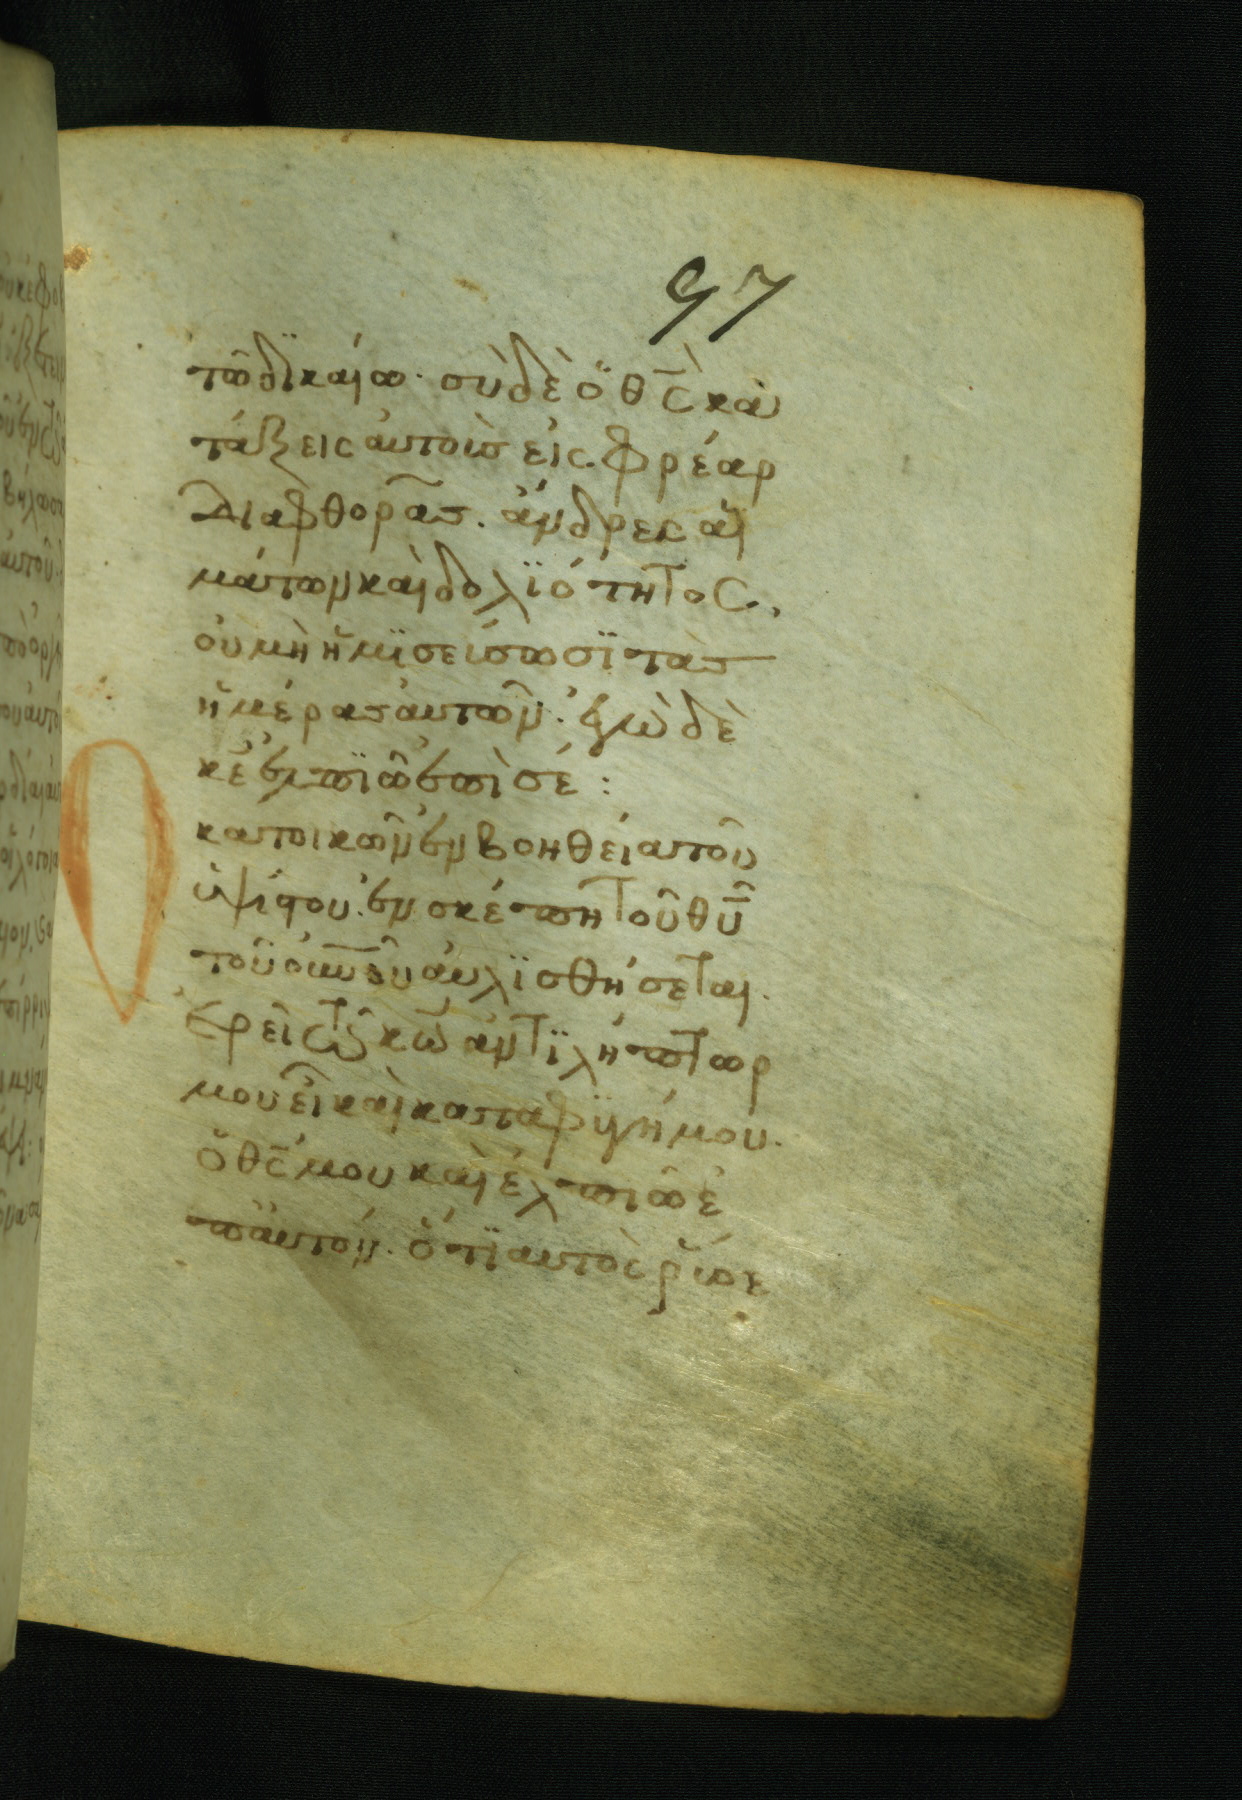 97
τῶ δϊκαίω· σὺ δὲ ὁ θς̅ κα
τάξεις ἀυτοὺς εἰς φρέαρ
Διαφθορᾶς. ἄνδρες αἱ
μάτων καὶ δολϊότητος,
ὀυ μὴ ἡμϊσεύσωσϊ τὰς
ἡμέρας ἀυτῶν· ἐγὼ δὲ
κε̅ ἐλπϊῶ ἐπὶ σέ:
κατοικῶν ἐν βοηθεία τοῦ
ὑψίστου. ἐν σκέπη τοῦ θυ̅
τοῦ ὀυν̅ου ἀυλϊσθήσεται.
ἐρεῖ τῶ κω̅ ἀντϊλήπτωρ
μου εἶ καὶ καταφϋγή μου.
ὁ θς̅ μου καὶ ἐλπιῶ ἐ
π ἀυτόν. ὅτϊ ἀυτὸς ῥύσε